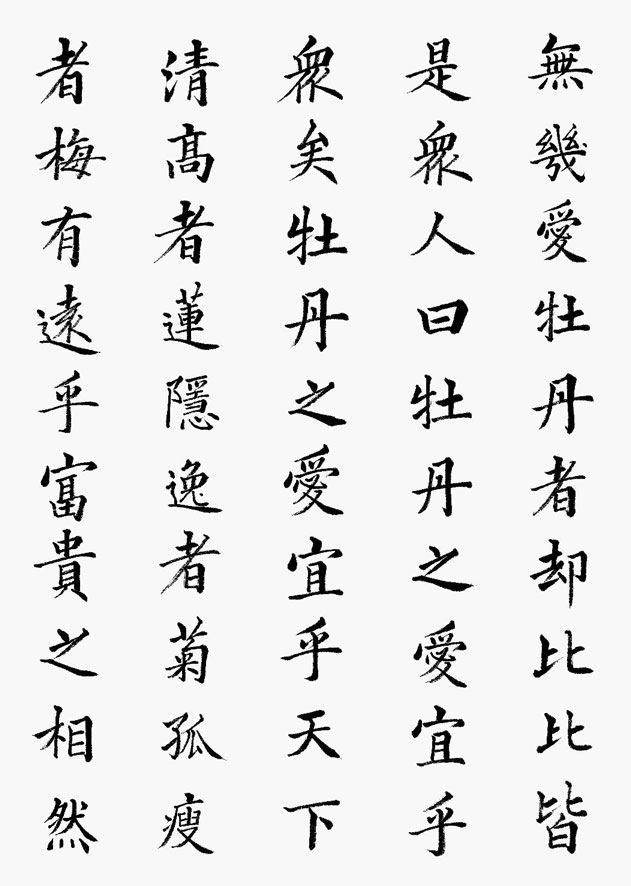 無幾愛牡丹者却比比皆
是衆人曰牡丹之愛宜乎
衆矣牡丹之愛宜乎天下
清高者蓮隱逸者菊孤瘦
者梅有遠乎富貴之相然